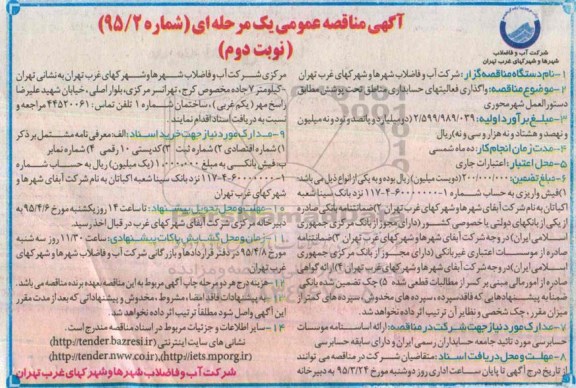 آگهی مناقصه عمومی یک مرحله ای (شماره ۹۵/۲)
(نوبت دوم)
شرکت آب و فاضلاب
شهرها و شهرکهای غرب تهران
۱-نام دستگاه مناقصه گزار: شرکت آب و فاضلاب شهرها و شهرکهای غرب تهران
۲-موضوع مناقصه: واگذاری فعالیتهای حسابداری مناطق تحت پوشش مطابق
دستورالعمل شهر محوری
۳-مبلغ برآورد اولیه: ۲/۵۹۹/۹۸۹/۰۳۹(دو میلیارد و پانصد و نود و نه میلیون
و نهصد و هشتاد و نه هزار و سی و نه)ریال
۴-مدت زمان انجام کار: ده ماه شمسی
۵-محل اعتبار: اعتبارات جاری
۶-مبلغ تضمین: ۲۰۰/۰۰۰/۰۰۰(دویست میلیون) ریال بوده و به یکی از انواع ذیل می باشد:
۱)فیش واریزی به حساب شماره ۱-۶۰۰۰۰۰۰-۴-۱۱۷ نزد بانک سینا شعبه
اکباتان به نام شرکت آبفای شهرها و شهرکهای غرب تهران ۲)ضمانتنامه بانکی صادره
از یکی از بانکهای دولتی یا خصوصی کشور (دارای مجوز از بانک مرکزی جمهوری
اسلامی ایران)در وجه شرکت آبفای شهرها و شهرکهای غرب تهران ۳)ضمانتنامه
صادره از موسسات اعتباری غیربانکی (دارای مجوز از بانک مرکزی جمهوری
اسلامی ایران)در وجه شرکت آبفای شهرها و شهرکهای غرب تهران ۴)ارائه گواهی
صادره از امور مالی مبنی بر کسر از مطالبات قطعی شده ۵) چک تضمین شده بانکی
ضمنا به پیشنهادهایی که فاقد سپرده، سپرده های مخدوش، سپرده های کمتر از
میزان مقرر، چک شخصی و نظایر آن ترتیب اثر داده نخواهد شد.
۷-مدارک مورد نیاز جهت شرکت در مناقصه: ارائه اساسنامه موسسات
حسابرسی مورد تائید جامعه حسابداران رسمی ایران و دارای سابقه حسابرسی
۸-مهلت و محل دریافت اسناد: متقاضیان شرکت در مناقصه می توانند
از تاریخ درج آگهی تا پایان ساعت اداری روز دوشنبه مورخ ۹۵/۳/۲۴ به دبیرخانه
مرکزی شرکت آب و فاضلاب شهرها و شهرکهای غرب تهران به نشانی تهران
-کیلومتر ۷ جاده مخصوص کرج، تهرانسر مرکزی، بلوار اصلی، خیابان شهید علیرضا
راسخ مهر (یکم غربی)، ساختمان شماره ۱ تلفن تماس: ۴۴۵۲۰۰۶۱ مراجعه و
نسبت به دریافت اسناد اقدام نمایند.
۹-مدارک مورد نیاز جهت خرید اسناد: الف:معرفی نامه مشتمل بر ذکر
۱) شماره اقتصادی ۲) شماره ثبت ۳) کدپستی ۱۰ رقمی ۴) شماره نمابر
ب: فیش بانکی به مبلغ ۱/۰۰۰/۰۰۰ (یک میلیون) ریال به حساب شماره
۱-۶۰۰۰۰۰۰-۴-۱۱۷ نزد بانک سینا شعبه اکباتان به نام شرکت آبفای شهرها و
شهرکهای غرب تهران
۱۰-مهلت و محل تحویل پیشنهاد: تا ساعت ۱۴ روز یکشنبه مورخ ۹۵/۴/۶ به
دبیرخانه مرکزی شرکت آبفای شهرکهای غرب تهران در قبال اخذ رسید.
۱۱-زمان و محل گشایش پاکات پیشنهادی: ساعت ۱۱/۳۰ روز سه شنبه
مورخ ۹۵/۴/۸ در دفتر قراردادها و بازرگانی شرکت آب و فاضلاب شهرها و شهرکهای
غرب تهران
۱۲-هزینه درج هر دو مرحله چاپ آگهی مربوط به این مناقصه بعهده برنده مناقصه می باشد.
۱۳-به پیشنهادات فاقد امضاء، مشروط، مخدوش و پیشنهاداتی که بعد از مدت مقرر
این آگهی واصل شود مطلقاً ترتیب اثر داده نخواهد شد.
۱۴-سایر اطلاعات و جزئیات مربوط در اسناد مناقصه مندرج است.
نشانی های سایت اینترنتی (http://tender.bazresi.ir)
(http://tender.nww.co.ir)،(http://iets.mporg.ir)
شرکت آب و فاضلاب شهرها و شهرکهای غرب تهران